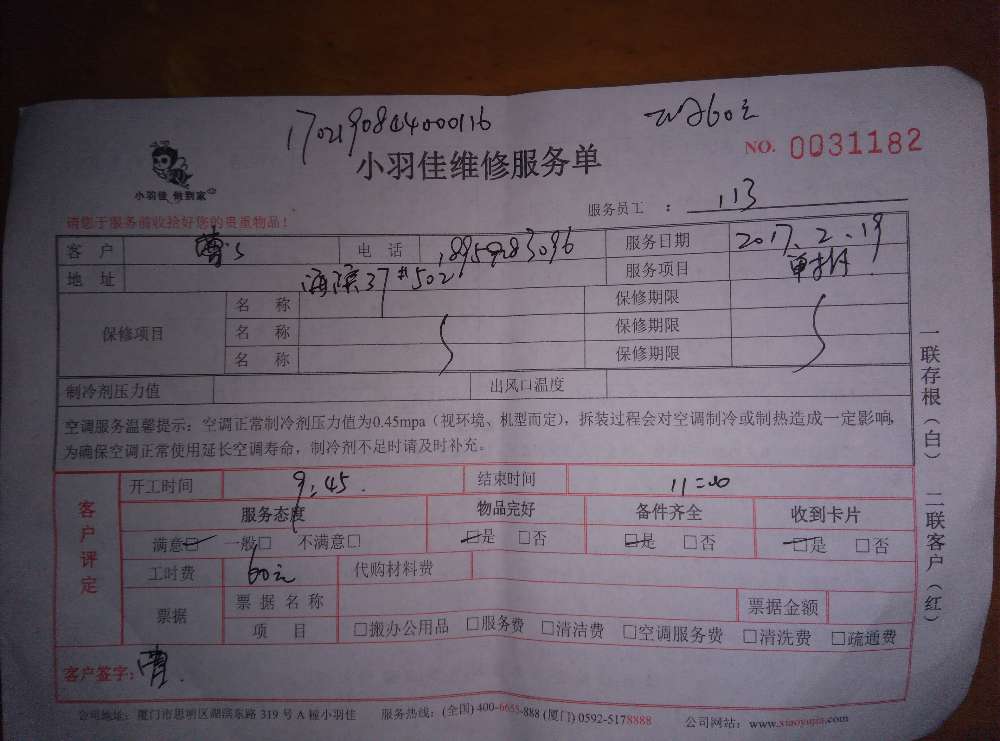 170219084400016
60元
NO. 0031182
小羽佳 做到家
小羽佳维修服务单
服务员工 ： 113
请您于服务前收拾好您的贵重物品！
客 户 电 话 服务日期 2017.2.19
地 址 37#502 服务项目
保修项目 名 称 保修期限
名 称 保修期限
名 称 保修期限
制冷剂压力值 出风口温度
空调服务温馨提示：空调正常制冷剂压力值为0.45mpa（视环境、机型而定），拆装过程会对空调制冷或制热造成一定影响，
为确保空调正常使用延长空调寿命，制冷剂不足时请及时补充。
客户评定
开工时间 9:45. 结束时间 11:00
服务态度 物品完好 备件齐全 收到卡片
满意☑ 一般□ 不满意□ ☑是 □否 ☑是 □否 ☑是 □否
工时费 60元 代购材料费
票据 票 据 名 称 票据金额
项 目 □搬办公用品 □服务费 □清洁费 □空调服务费 □清洗费 □疏通费
客户签字：
公司地址：厦门市思明区湖滨东路 319 号 A 幢小羽佳 服务热线：(全国) 400-6655-888 (厦门) 0592-5178888 公司网站：www.xiaoyujia.com
一联存根（白） 二联客户（红）